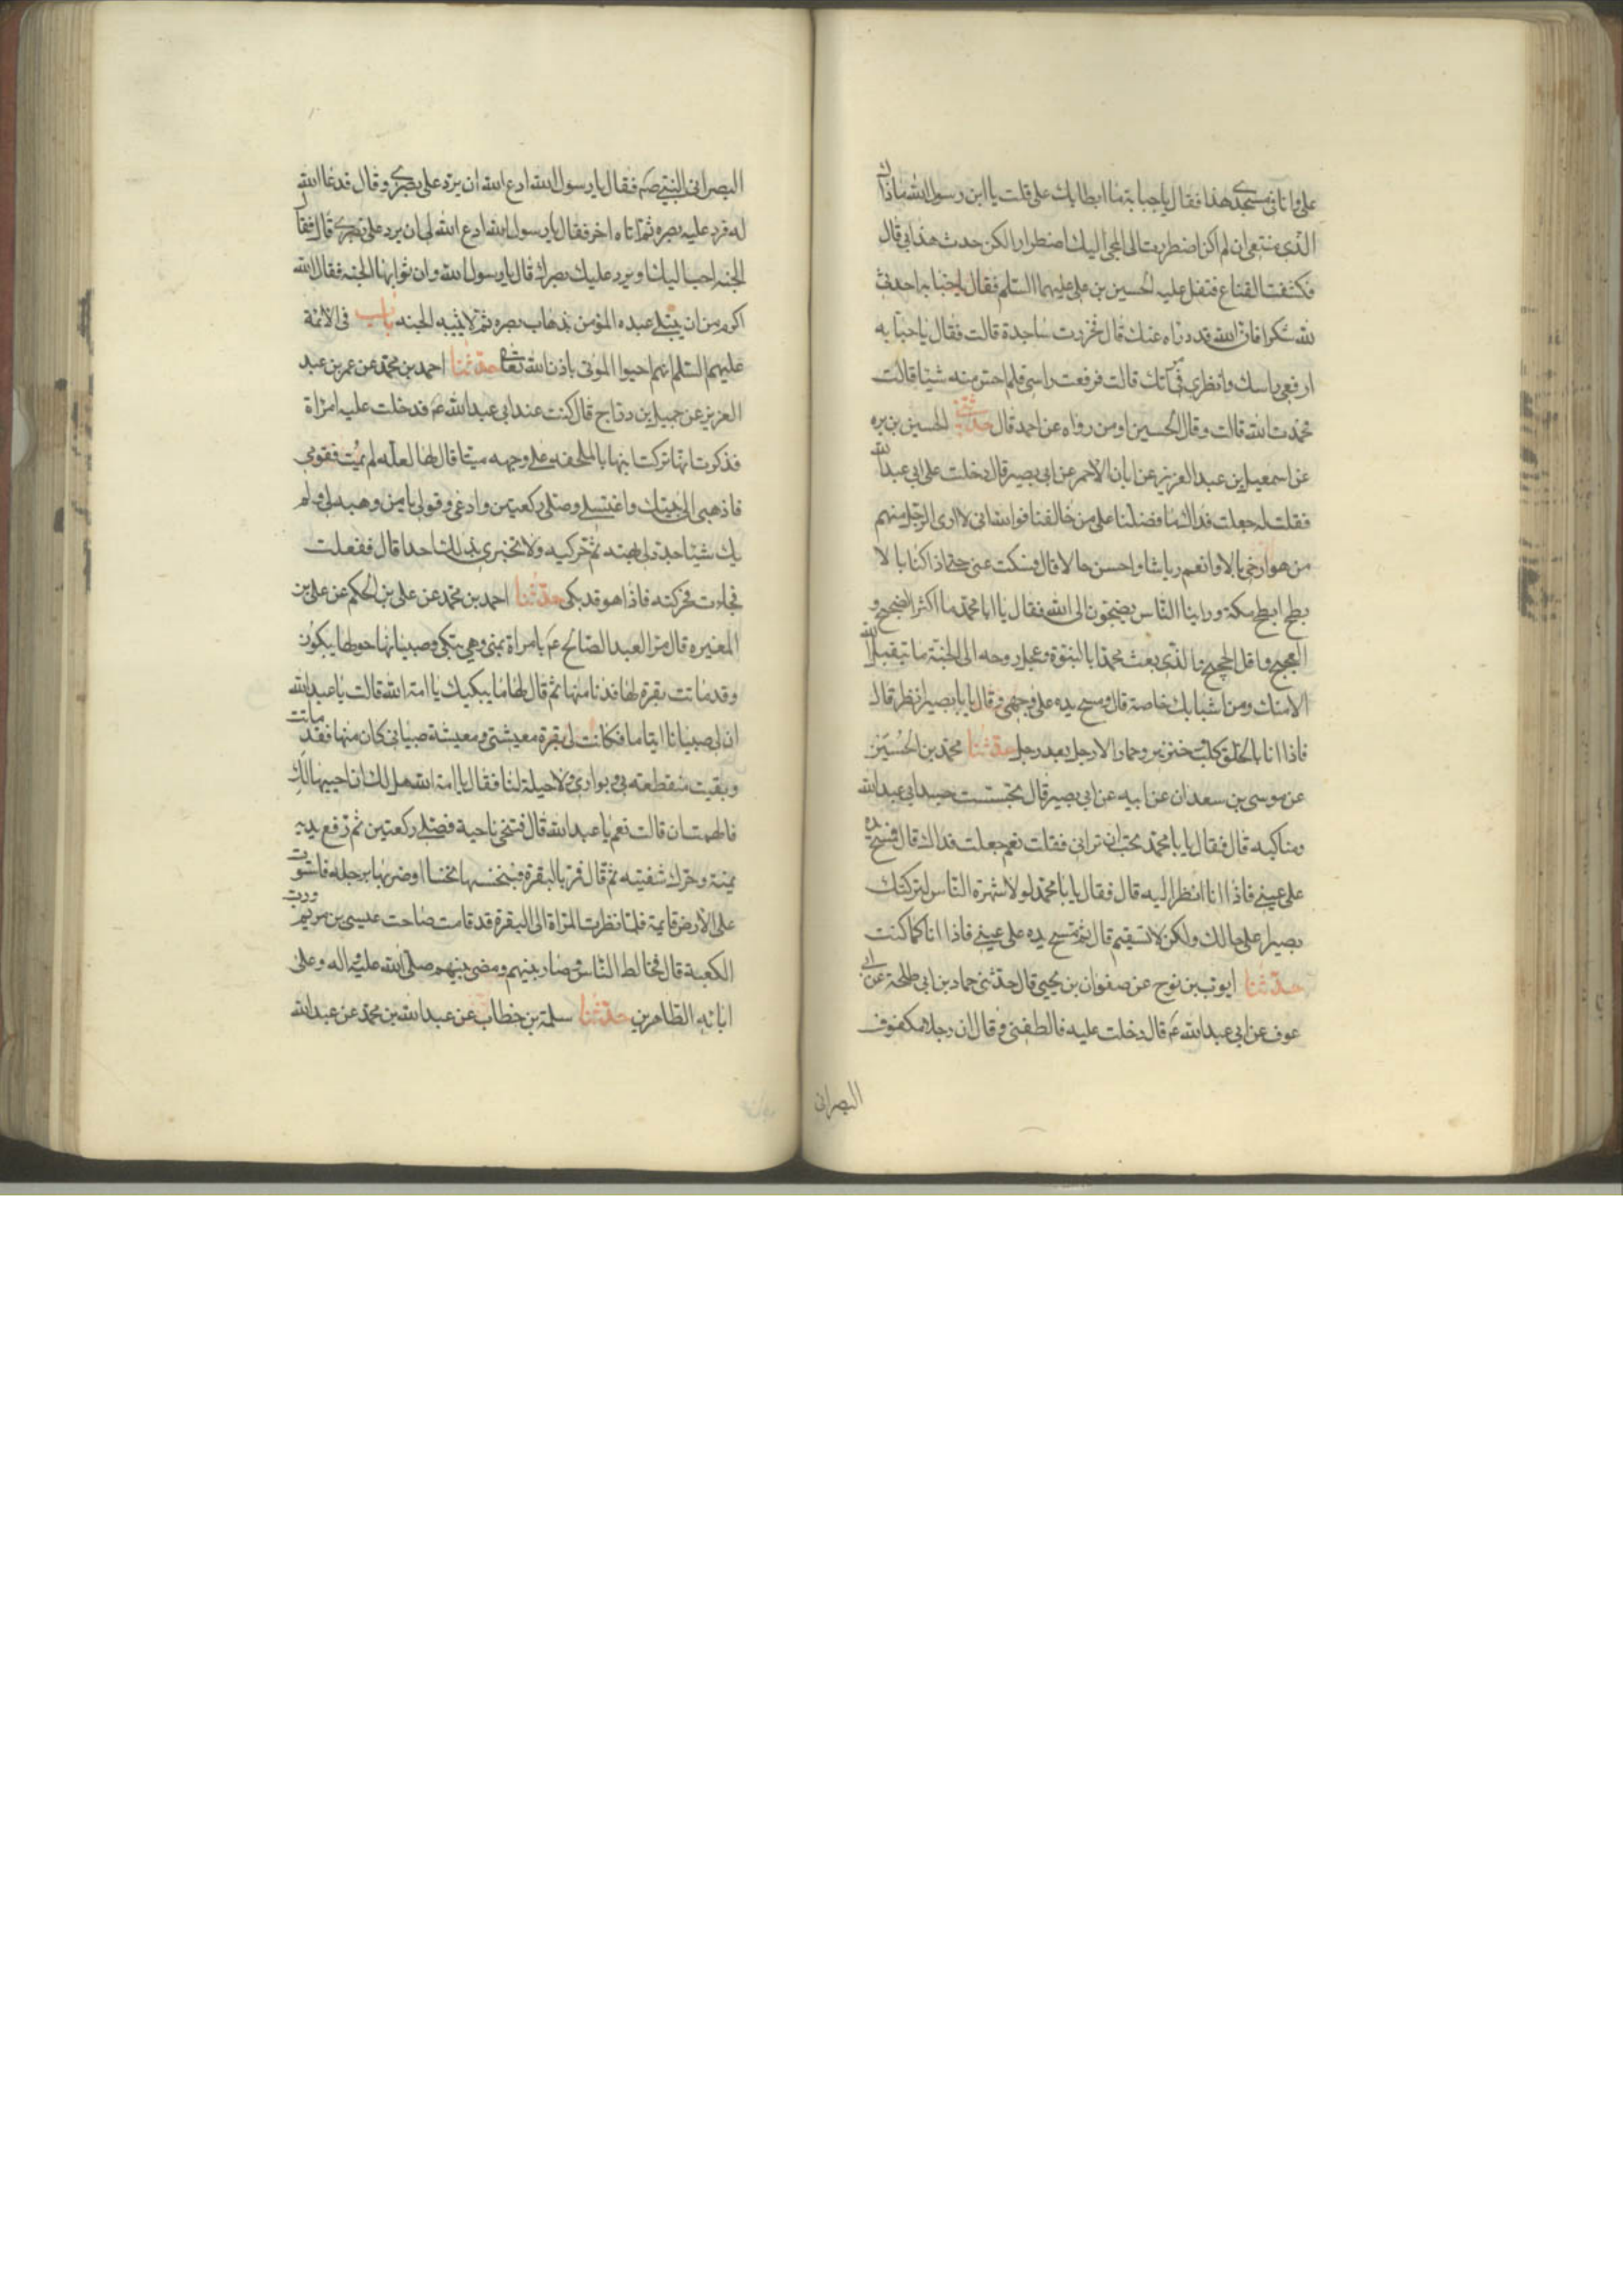 علی وانا فی مسجدی هذا فقال یا حبابة ما ابطا بك علی قلت یا ابن رسول الله ماذاك
الذی منعنی ان لم اکن اضطررت الی المجی الیك اضطرارا لکن حدث هذا بی قال
فکشفت القناع فتفل علیه الحسین بن علی علیهما السلم فقال یا حبابه احدثی
لله شکرا فان الله قد دراه عنك قال فخررت ساجدة قالت فقال یا حبابه
ارفعی راسك وانظری فی مرآتك قالت فرفعت راسی فلم احس منه شیئا قالت
فحمدت الله قالت وقال الحسین او من رواه عن احمد قال حدثنی الحسین بن بره
عن اسمعیل بن عبد العزیز عن ابان الاحمر عن ابی بصیر قال دخلت علی ابی عبد الله
فقلت له جعلت فداك ما فضلنا علی من خالفنا فو الله انی لا اری الرجل منهم
من هو ارخی بالا وانعم ریاشا واحسن حالا قال فسکت عنی حتی اذا کنا بالا
بطح ابطح مکة وراینا الناس یضجون الی الله فقال یا ابا محمد ما اکثر الضجیج و
العجیج واقل الحجیج والذی بعث محمدا بالنبوة وعجل روحه الی الجنة ما یتقبل الله
الا منك ومن اشباهك خاصة قال ومسح یده علی وجهی وقال یا با بصیر انظر قال
فاذا انا بالخلق کلب خنزیر وحمار الا رجل بعد رجل حدثنا محمد بن الحسین
عن موسی بن سعدان عن ابیه عن ابی بصیر قال تجسست جسد ابی عبد الله
ومناکبه قال فقال یا با محمد تحب ان ترانی فقلت نعم جعلت فداك قال فمسح یده
علی عینی فاذا انا انظر الیه قال فقال یا با محمد لو لا شهرة الناس لترکتك
بصیرا علی حالك ولکن لا تستقیم قال ثم مسح یده علی عینی فاذا انا کما کنت
حدثنا ایوب بن نوح عن صفوان بن یحیی قال حدثنی حماد بن ابی طلحة عن ابی
عوف عن ابی عبد الله ع قال دخلت علیه فالطفنی وقال ان رجلا مکفوف
البصرانی
البصر اتی النبی ص فقال یا رسول الله ادع الله ان یرد علی بصری وقال فدعا الله
له فرد علیه بصره ثم اتاه اخر فقال یا رسول الله ادع الله لی ان یرد علی بصری قال فقال
الجنه احب الیك او یرد علیك بصرك قال یا رسول الله وان ثوابها الجنه فقال الله
اکرم من ان یبتلی عبده المؤمن بذهاب بصره ثم لا یثیبه الجنه باب فی الائمة
علیهم السلم انهم احیوا الموتی باذن الله تعالی حدثنا احمد بن محمد عن عمر بن عبد
العزیز عن جمیل بن دراج قال کنت عند ابی عبد الله ع فدخلت علیه امراة
فذکرت انها ترکت ابنها بالملحفه علی وجهه میتا قال لها لعله لم یمت فقومی
فاذهبی الی بیتك واغتسلی وصلی رکعتین وادعی وقولی یا من وهبه لی ولم
یك شیئا جدد لی هبته ثم حرکیه ولا تخبری بذلك احدا قال ففعلت
فجاءت فحرکته فاذا هو قد بکی حدثنا احمد بن محمد عن علی بن الحکم عن علی بن
المغیره قال مر العبد الصالح ع بامراة بمنی وهی تبکی وصبیانها حولها یبکون
وقد ماتت بقرة لها فدنا منها ثم قال لها ما یبکیك یا امة الله قالت یا عبد الله
ان لی صبیانا ایتاما فکانت لی بقرة معیشتی ومعیشة صبیانی کان منها فقد ماتت
وبقیت منقطعه بی وبوادی ولا حیلة لنا فقال یا امة الله هل لك ان احییها لك
فالهمت ان قالت نعم یا عبد الله قال فتنحی ناحیة فصلی رکعتین ثم رفع یدیه
یمنة وحرك شفتیه ثم قال فمر بالبقرة فنخسها نخسا او ضربها برجله فاستوت
علی الارض قایمة فلما نظرت المراة الی البقرة قد قامت صاحت عیسی بن مریم ورب
الکعبة قال فخالط الناس وصار بینهم ومضی بینهم صلی الله علیه واله وعلی
ابائه الطاهرین حدثنا سلمة بن خطاب عن عبد الله بن محمد عن عبد الله